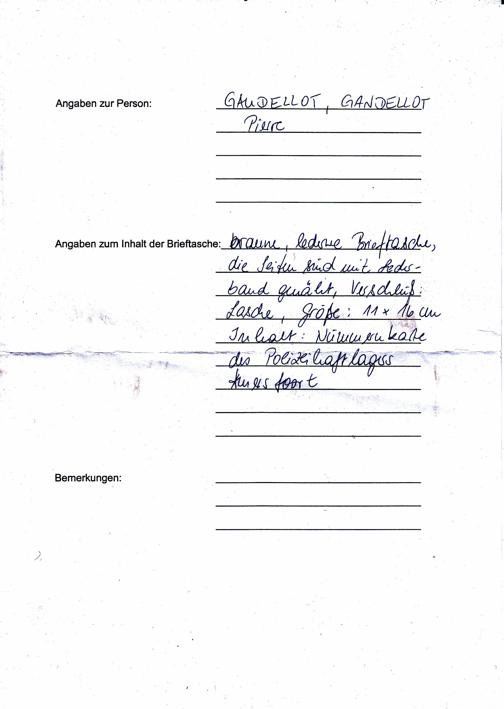 Angaben zur Person: GAUDELLOT, GANDELLOT
Pierre
Angaben zum Inhalt der Brieftasche: braune, lederne Brieftasche,
die Seiten sind mit Leder-
band genäht, Verschluß:
Lasche, Größe: 11 x 16 cm
Inhalt: Nummernkarte
des Polizeihaftlagers
Amersfoort
Bemerkungen: